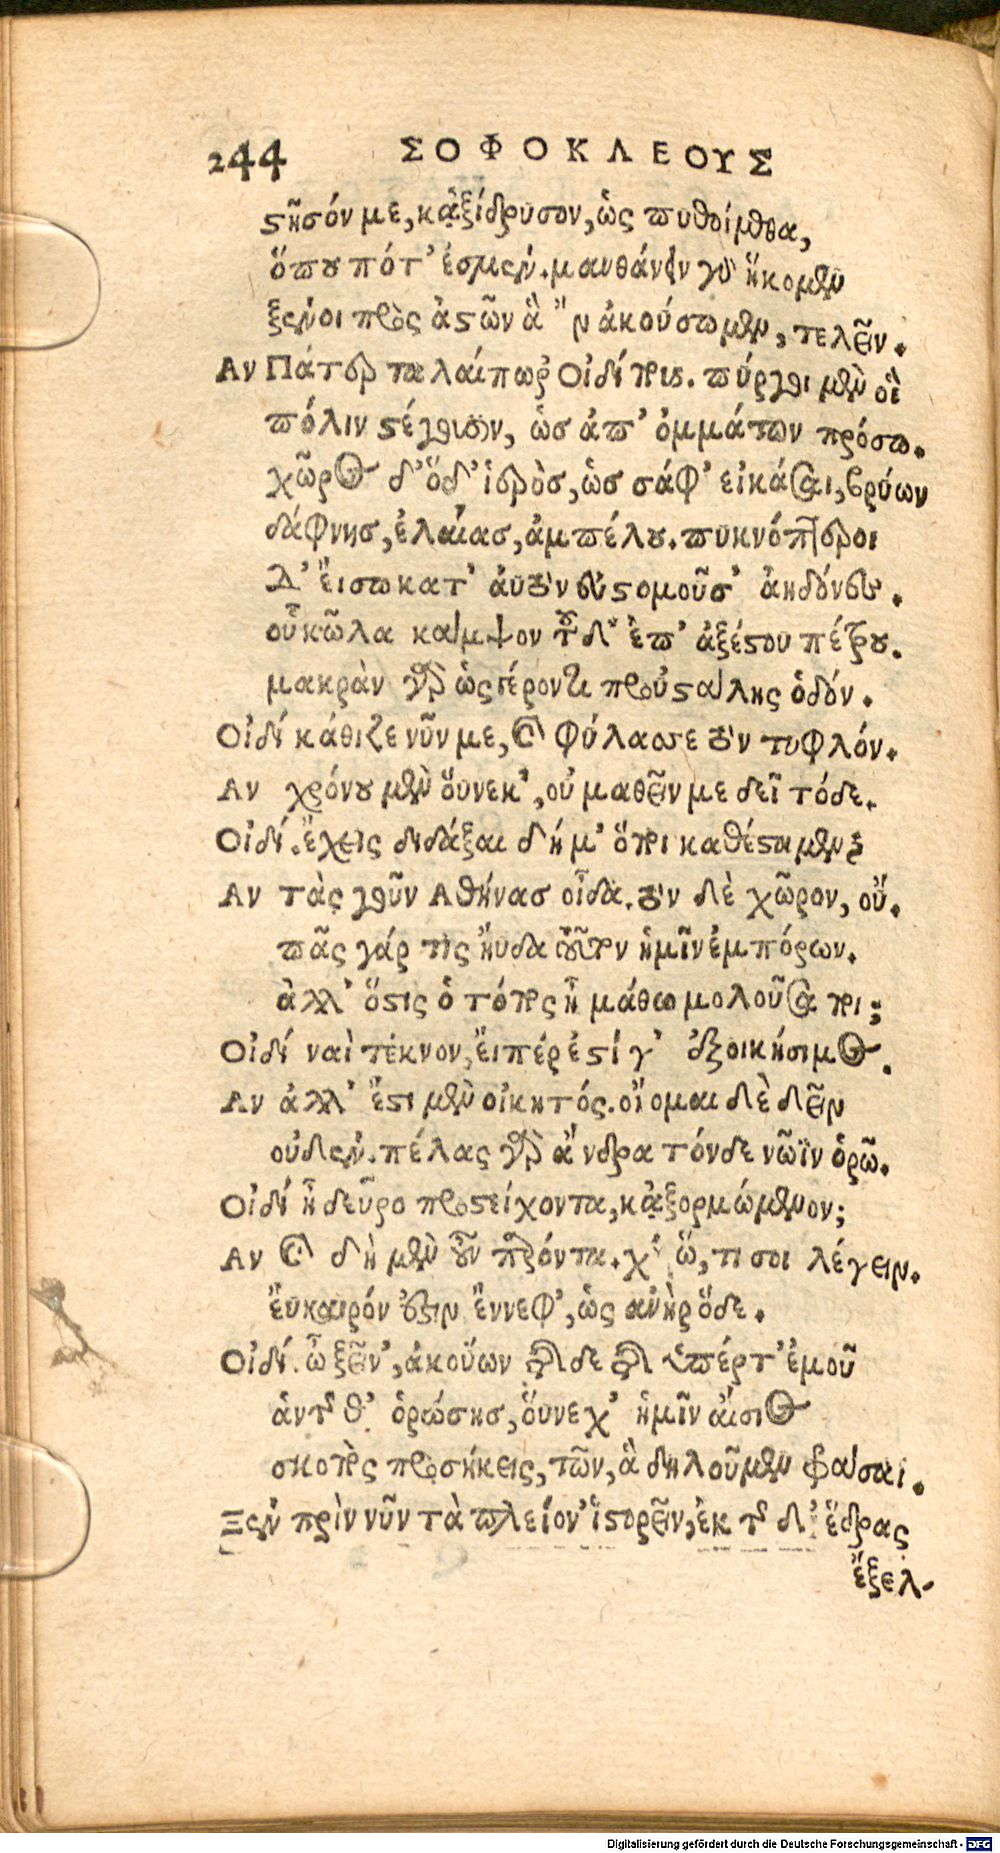 244 ΣΟΦΟΚΛΕΟΥΣ
στῆσόν με, κᾀξίδρυσον, ὡς πυθοίμεθα,
ὅπου πότ' ἐσμέν. μανθάνειν γὰρ ἥκομεν
ξένοι πρὸς ἀστῶν ἃ ἂν ἀκούσωμεν, τελεῖν.
Αν Πάτερ ταλαίπωρ' Οἰδίπους. πύργοι μὲν οἳ
πόλιν στέγουσιν, ὡσ ἀπ' ὀμμάτων πρόσω.
χῶρος δ' ὅδ' ἱερὸσ, ὡσ σάφ' εἰκάσαι, βρύων
δάφνησ, ἐλαίασ, ἀμπέλου. πυκνόπτεροι
δ' ἔισω κατ' ἀυτὸν ἐυστομοῦσ' ἀηδόνες.
οὗ κῶλα κάμψον τοῦδ' ἐπ' ἀξέστου πέτρου.
μακρὰν γὰρ ὡς γέροντι προὐστάλης ὁδόν.
Οἰδί κάθιζε νῦν με, καὶ φύλασσε τὸν τυφλόν.
Αν χρόνου μὲν οὕνεκ', οὐ μαθεῖν με δεῖ τόδε.
Οἰδί. ἔχεις διδάξαι δή μ' ὅποι καθέσταμεν;
Αν τὰς γοῦν Αθήνασ οἶδα. τὸν δὲ χῶρον, οὔ.
πᾶς γάρ τις ἤυδα τοῦτον ἡμῖν ἐμπόρων.
ἀλλ' ὅστις ὁ τόπος ἢ μάθω μολοῦσα ποι;
Οἰδί ναὶ τέκνον, ἔιπέρ ἐστί γ' ἐξοικήσιμος.
Αν ἀλλ' ἔστι μὲν οἰκητός. οἴομαι δὲ δεῖν
οὐδέν. πέλας γὰρ ἄνδρα τόνδε νῶϊν ὁρῶ.
Οἰδί ἢ δεῦρο προστείχοντα, κᾀξορμώμενον;
Αν καὶ δὴ μὲν οὖν παρόντα. χ' ὤ, τι σοι λέγειν.
ἔυκαιρόν ἐστιν ἔννεφ', ὡς ἁνὴρ ὅδε.
Οἰδί. ὦ ξεῖν', ἀκούων τῆσδε τῆς ὑπέρ τ' ἐμοῦ
ἁυτῆς θ' ὁρώσησ, ὅυνεχ' ἡμῖν ἄισιος
σκοπὸς προσήκεις, τῶν, ἃ δηλοῦμεν φράσαι.
Ξεν πρὶν νῦν τὰ πλείον' ἱστορεῖν, ἐκ τῆσδ' ἕδρας
ἔξελ-
Digitalisierung gefördert durch die Deutsche Forschungsgemeinschaft - DFG